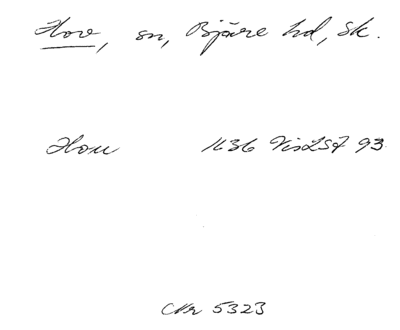 Hov, sn, Bjäre hd, Sk.
Hou 1636 VisLSt 93
CNr 5323